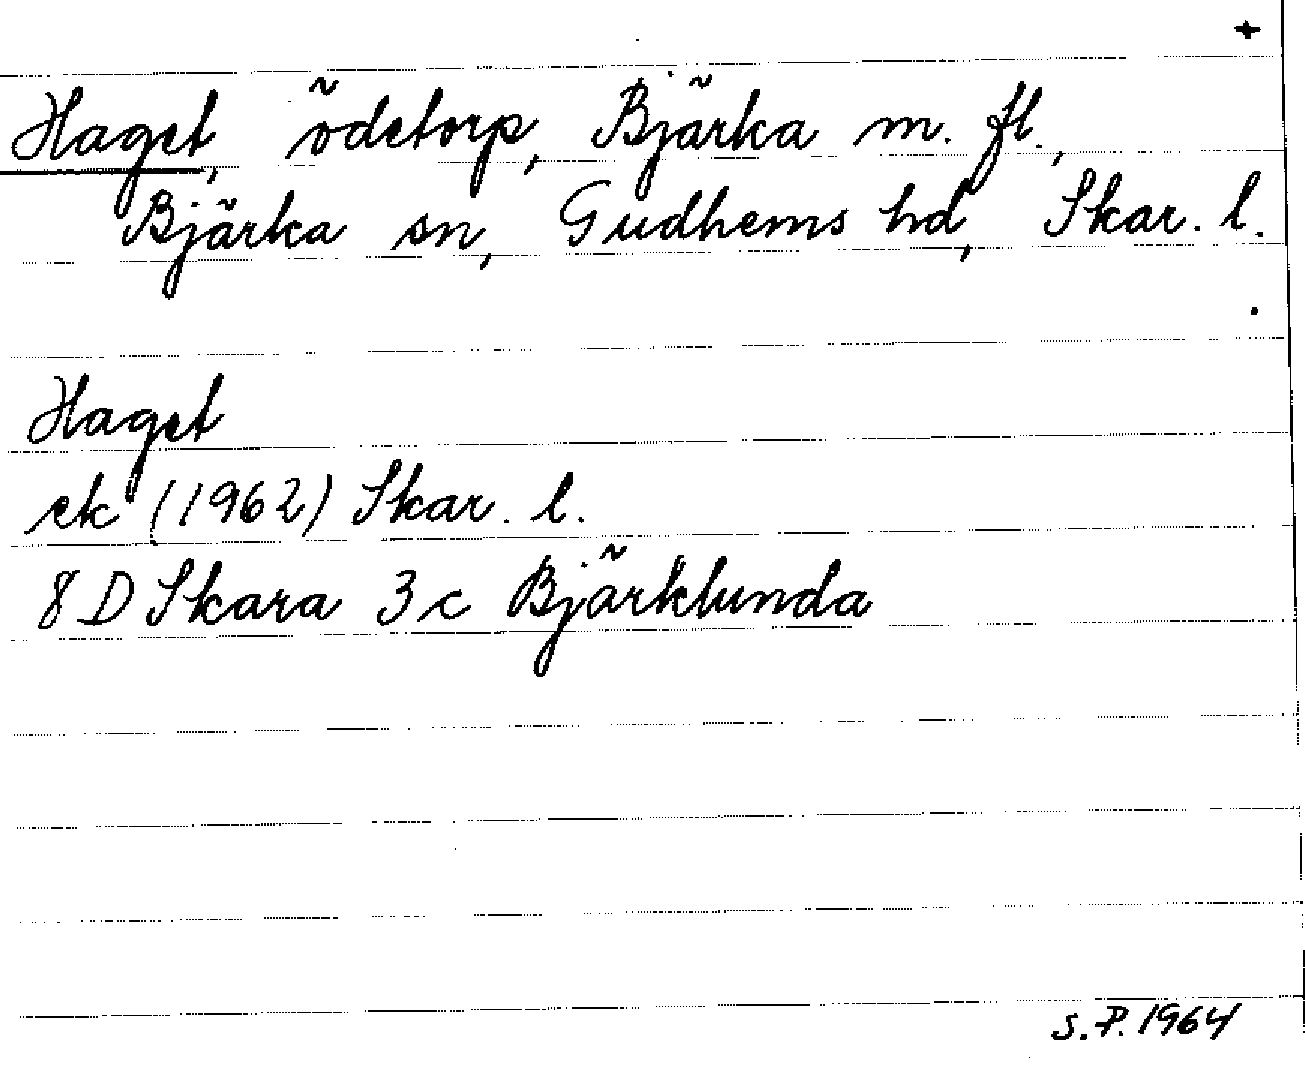 +
Haget, ödetorp, Bjärka m. fl.,
Bjärka sn, Gudhems hd, Skar. l.
Haget
ek (1962) Skar. l.
8 D Skara 3 c Bjärklunda
S.P. 1964